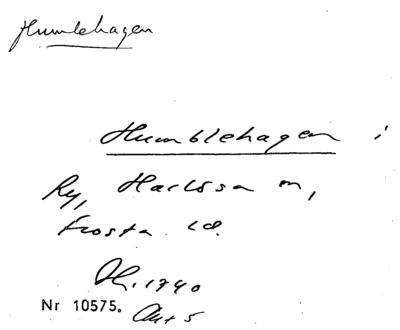 Humlehagen
Humblehagen i
Ry, Harlösa m,
Frosta Ld.
LM. 1790
Nr 10575. Akt 5